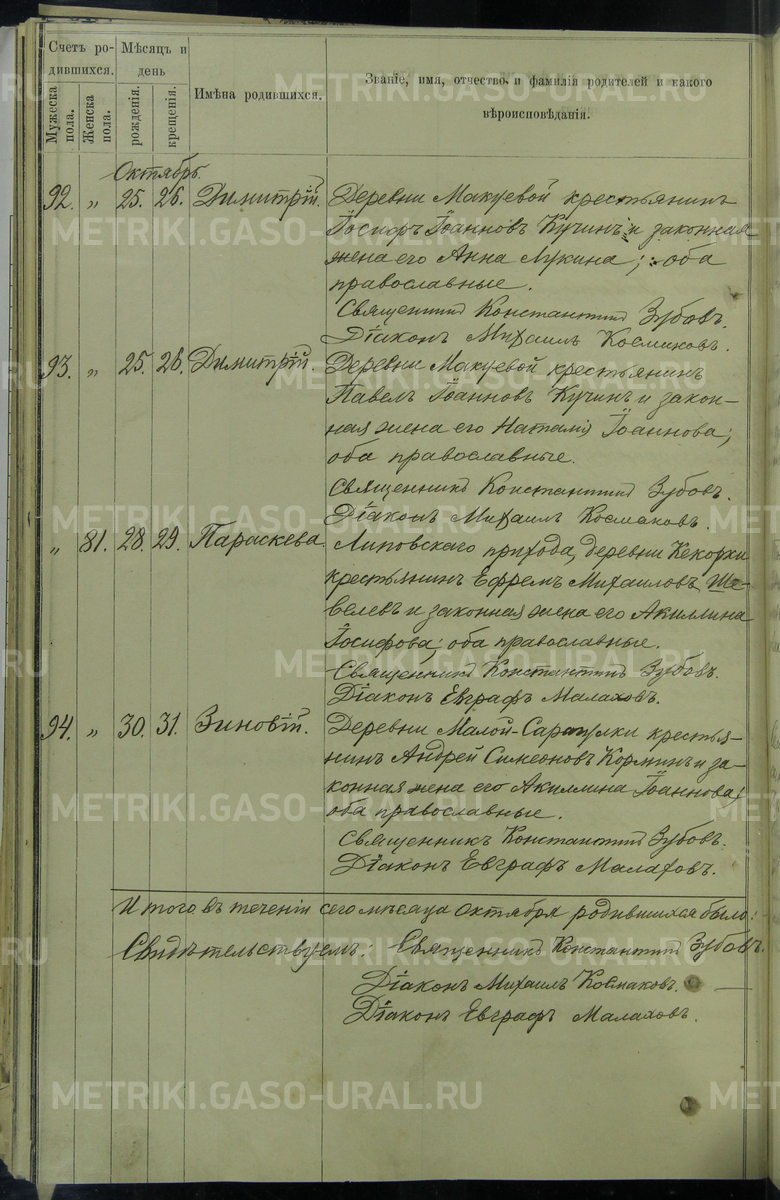 Счетъ ро- Мѣсяцъ и
дившихся. день
Мужеска пола. Женска пола. рожденія. крещенія. Имѣна родившихся. Званіе, имя, отчество и фамилія родителей и какого
вѣроисповѣданія.
Октябрь.
92. „ 25. 26. Димитрій. Деревни Макуевой крестьянинъ
Іосифъ Іоанновъ Кучинъ и законная
жена его Анна Лукина; оба
православные.
Священникъ Константинъ Зубовъ.
Діаконъ Михаилъ Космаковъ.
93. „ 25. 26. Димитрій. Деревни Макуевой крестьянинъ
Павелъ Іоанновъ Кучинъ и закон-
ная жена его Наталія Іоаннова;
оба православные.
Священникъ Константинъ Зубовъ.
Діаконъ Михаилъ Космаковъ.
„ 81. 28. 29. Параскева. Липовскаго прихода, деревни Кекорки
крестьянинъ Ефремъ Михаиловъ Ше-
велевъ и законная жена его Акилина
Іосифова; оба православные.
Священникъ Константинъ Зубовъ.
Діаконъ Евграфъ Малаховъ.
94. „ 30. 31. Зиновій. Деревни Малой-Сарапулки крестья-
нинъ Андрей Симеоновъ Корминъ и за-
конная жена его Акилина Іоаннова;
оба православные.
Священникъ Константинъ Зубовъ.
Діаконъ Евграфъ Малаховъ.
Итого въ теченіи сего мѣсяца октября родившихся было:
Свидѣтельствуемъ: Священникъ Константинъ Зубовъ.
Діаконъ Михаилъ Космаковъ.
Діаконъ Евграфъ Малаховъ.
METRIKI.GASO-URAL.RU